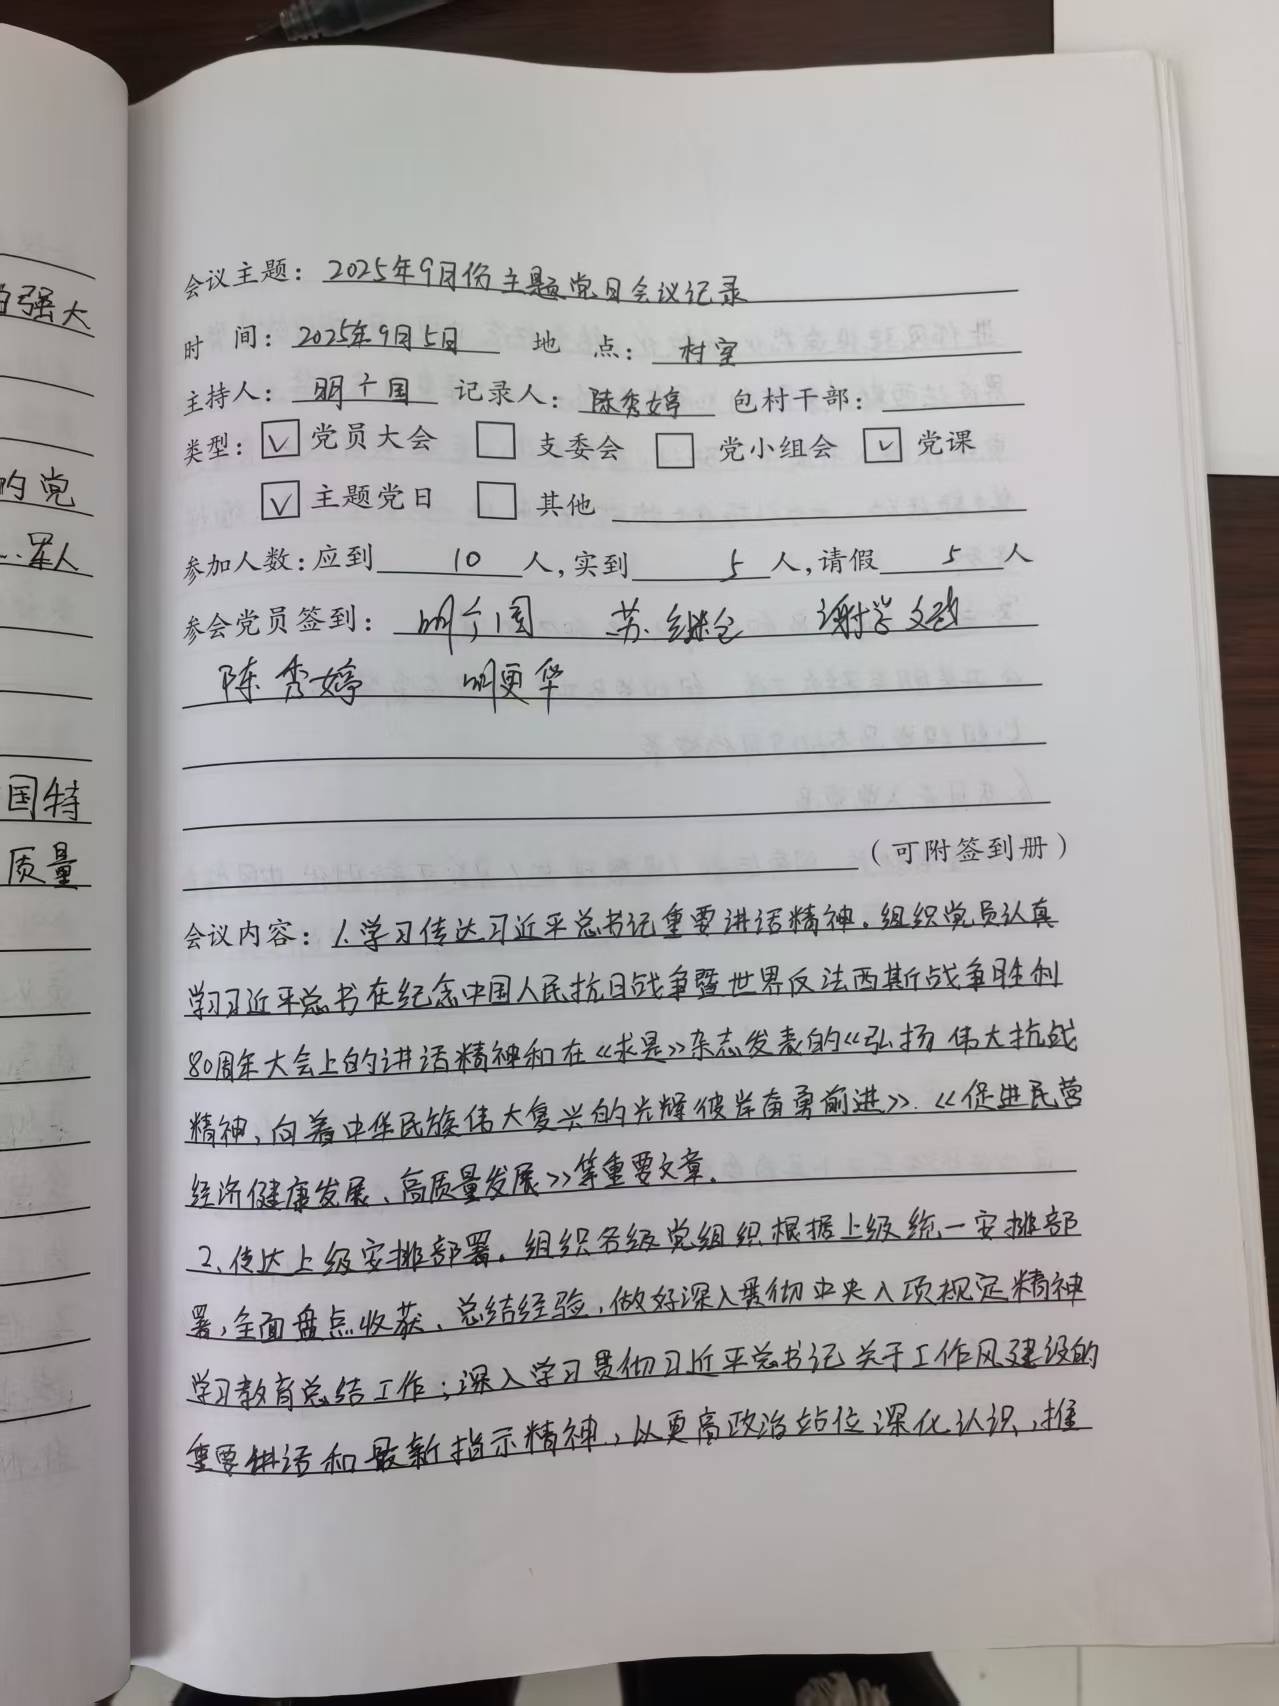 的强大
的党
国特
质量
会议主题：2025年9月份主题党日会议记录
时 间：2025年9月5日 地 点：村室
主持人：明个国 记录人：陈秀婷 包村干部：
类型：☑党员大会 □支委会 □党小组会 ☑党课
☑主题党日 □其他
参加人数：应到 10 人，实到 5 人，请假 5 人
参会党员签到：明个国 苏继全 谢学文
陈秀婷 明更华
（可附签到册）
会议内容：1.学习传达习近平总书记重要讲话精神。组织党员认真
学习习近平总书在纪念中国人民抗日战争暨世界反法西斯战争胜利
80周年大会上的讲话精神和在《求是》杂志发表的《弘扬伟大抗战
精神、向着中华民族伟大复兴的光辉彼岸奋勇前进》.《促进民营
经济健康发展、高质量发展》等重要文章。
2、传达上级安排部署。组织各级党组织根据上级统一安排部
署，全面盘点收获、总结经验，做好深入贯彻中央八项规定精神
学习教育总结工作；深入学习贯彻习近平总书记关于工作风建设的
重要讲话和最新指示精神，以更高政治站位深化认识，推